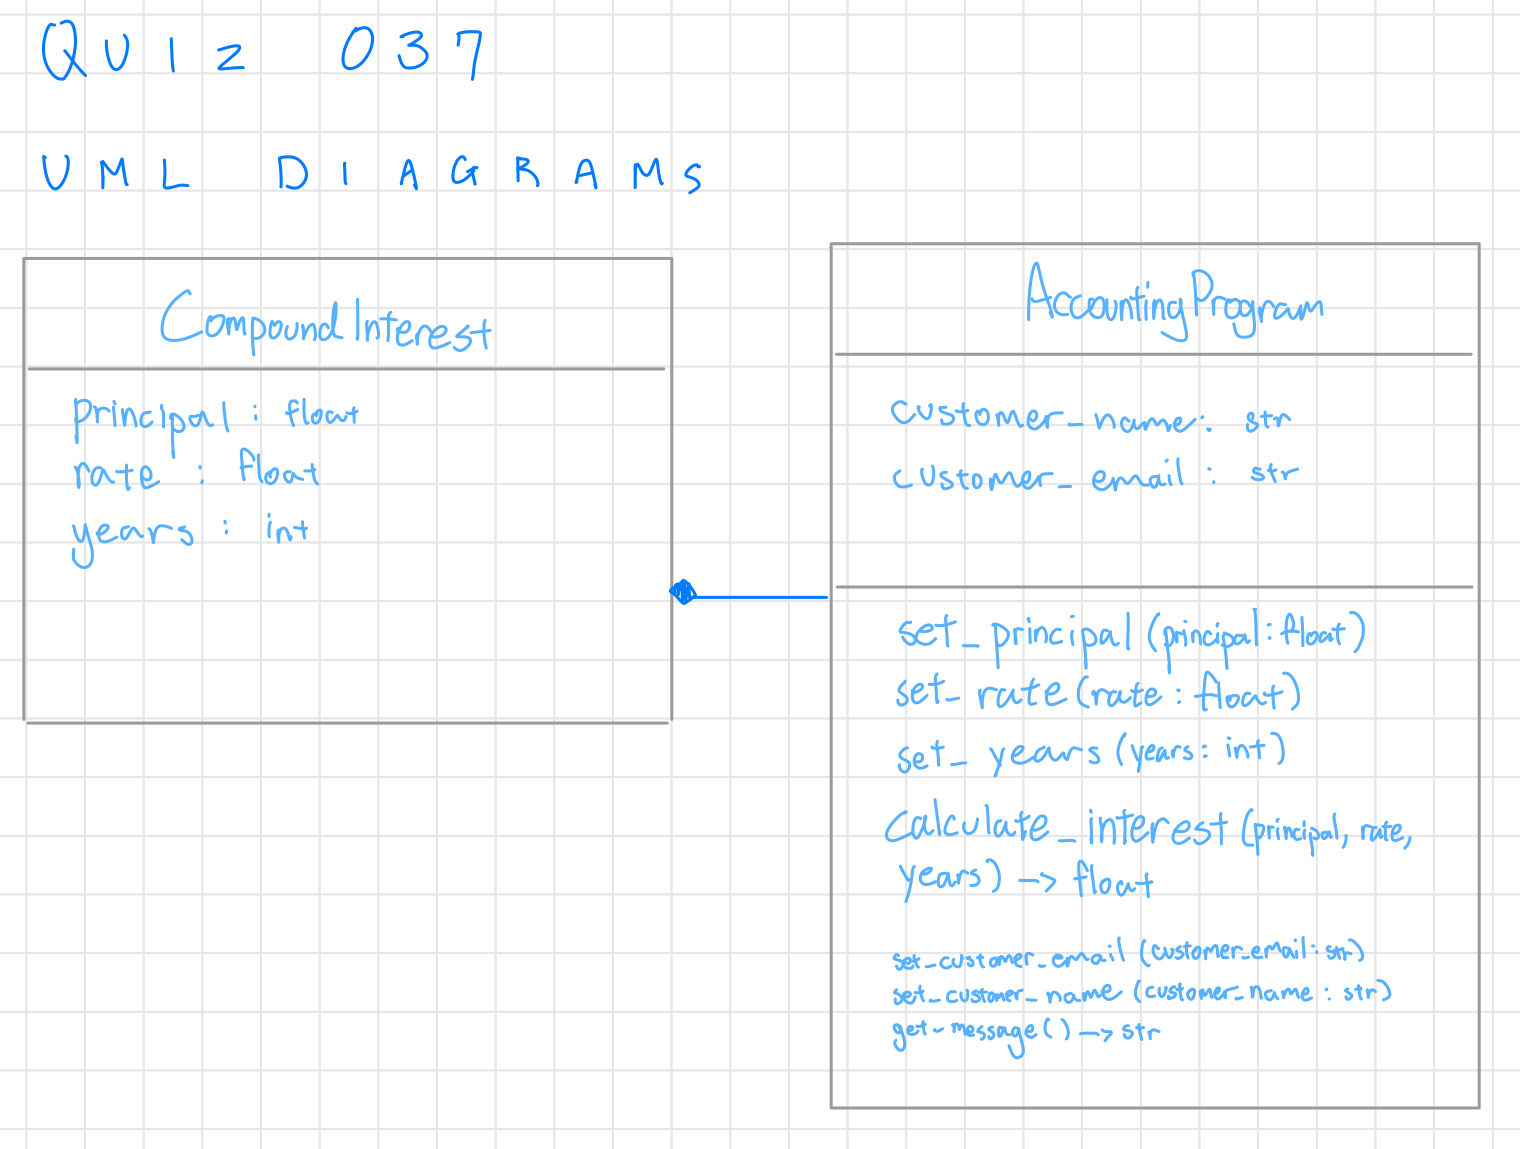 QUIZ 037
UML DIAGRAMS
CompoundInterest
principal : float
rate : float
years : int
AccountingProgram
customer_name: str
customer_email : str
set_principal (principal: float)
set_rate (rate : float)
set_years (years: int)
calculate_interest (principal, rate,
years) -> float
set_customer_email (customer_email: str)
set_customer_name (customer_name : str)
get-message() -> str